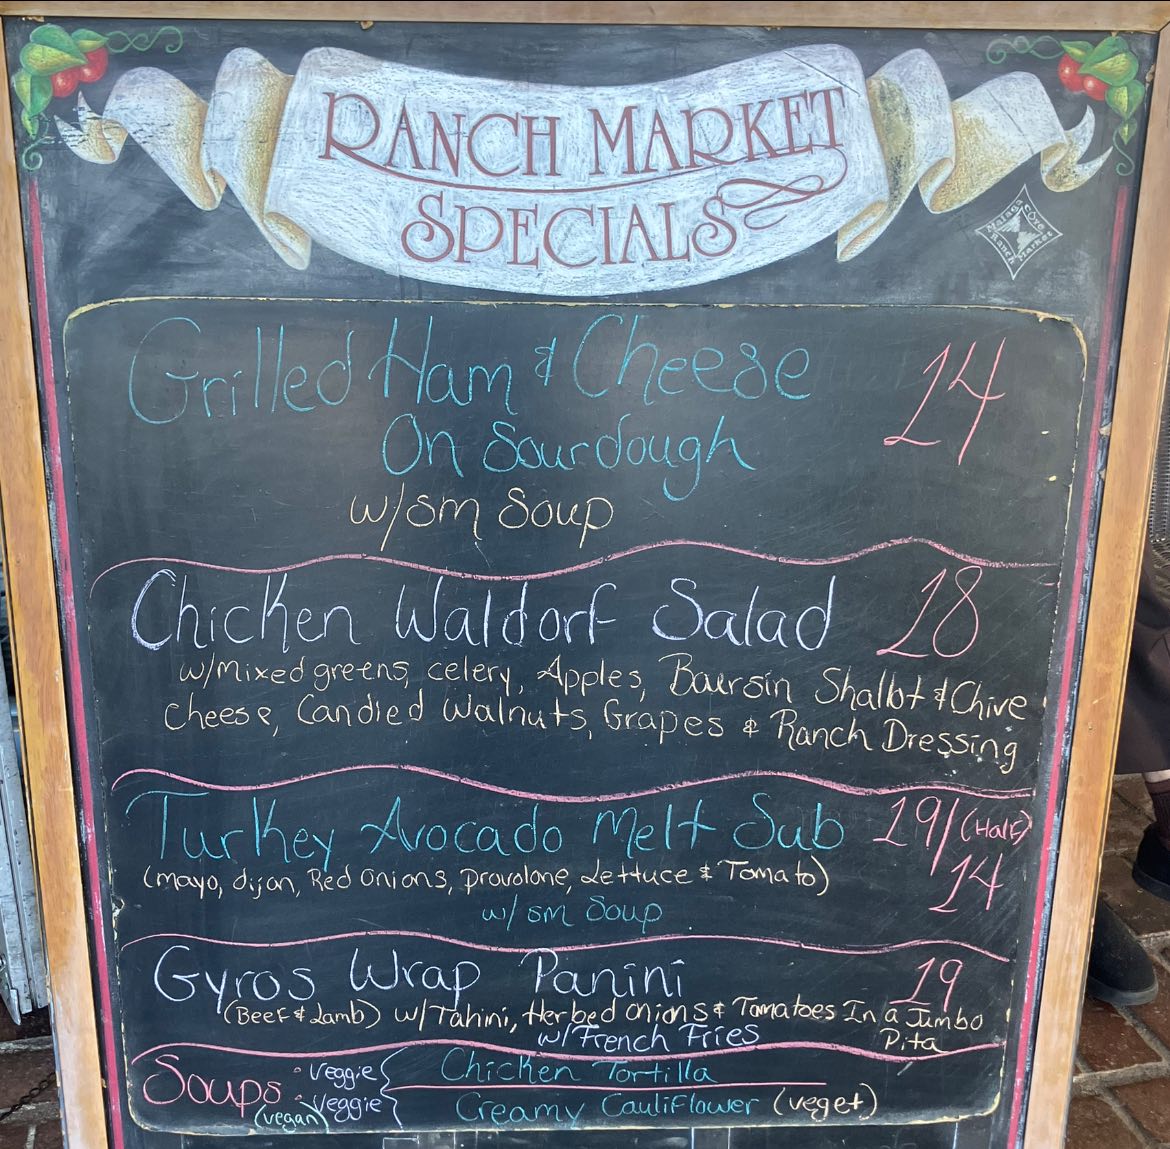 RANCH MARKET
SPECIALS
Malaga Cove
Ranch Market
Grilled Ham & Cheese 14
On Sourdough
w/sm Soup
Chicken Waldorf Salad 18
w/Mixed greens, celery, Apples, Boursin Shallot & Chive
Cheese, Candied Walnuts, Grapes & Ranch Dressing
Turkey Avocado Melt Sub 19/(Half)
14
(mayo, dijon, Red Onions, provolone, Lettuce & Tomato)
w/ sm Soup
Gyros Wrap Panini 19
(Beef & Lamb) w/Tahini, Herbed onions & Tomatoes In a Jumbo
Pita
w/French Fries
Soups • Veggie { Chicken Tortilla
(vegan) • Veggie { Creamy Cauliflower (veget)